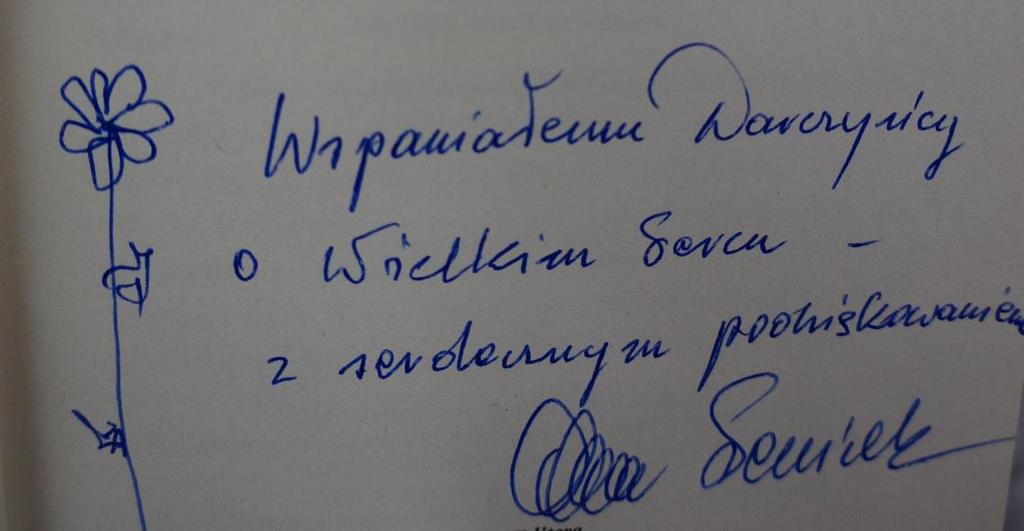 Wspaniałemu Darczyńcy
o Wielkim Sercu -
z serdecznym podziękowaniem